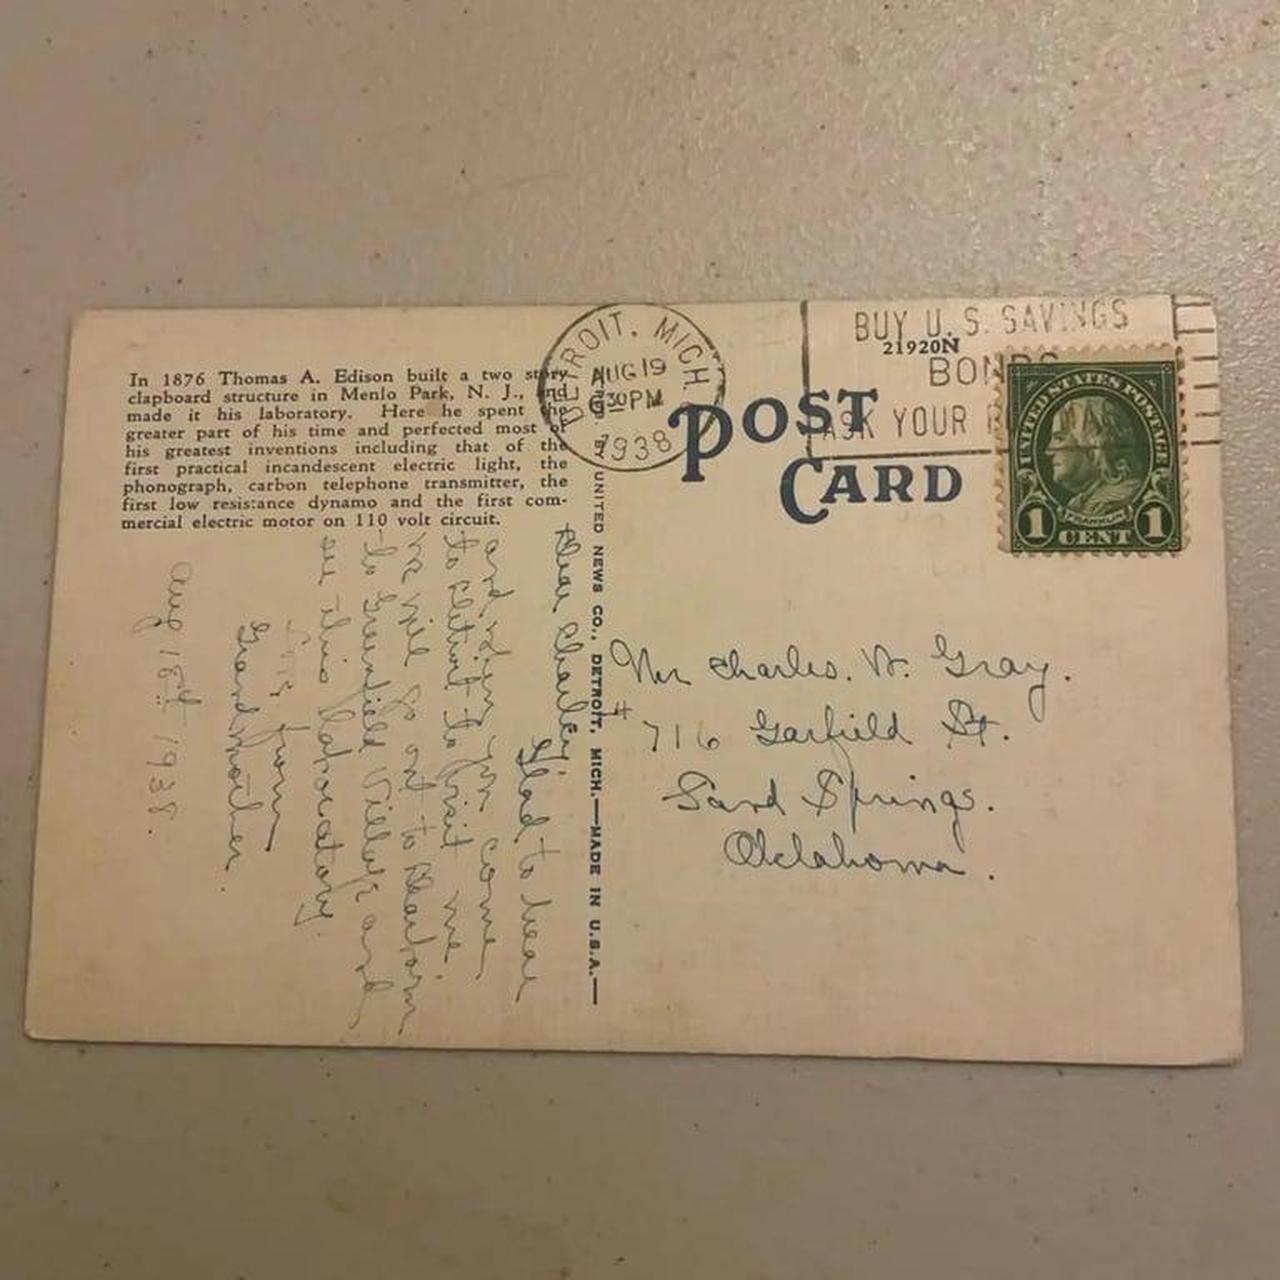 In 1876 Thomas A. Edison built a two story
clapboard structure in Menlo Park, N. J., and
made it his laboratory. Here he spent the
greater part of his time and perfected most of
his greatest inventions including that of the
first practical incandescent electric light, the
phonograph, carbon telephone transmitter, the
first low resistance dynamo and the first com-
mercial electric motor on 110 volt circuit.
Dear Charley:
Glad to hear
and when you come
to Detroit to visit me.
we will go out to Dearborn
to Greenfield Village and
see this laboratory.
from
Grandmother.
Aug 18th 1938.
BY UNITED NEWS CO., DETROIT, MICH.—MADE IN U.S.A.—
DETROIT, MICH.
AUG 19
630PM
1938
BUY U.S. SAVINGS
BONDS
ASK YOUR
21920N
POST
CARD
UNITED STATES POSTAGE
FRANKLIN
1 CENT 1
Mr Charles. W. Gray.
716 Garfield St.
Sand Springs.
Oklahoma.